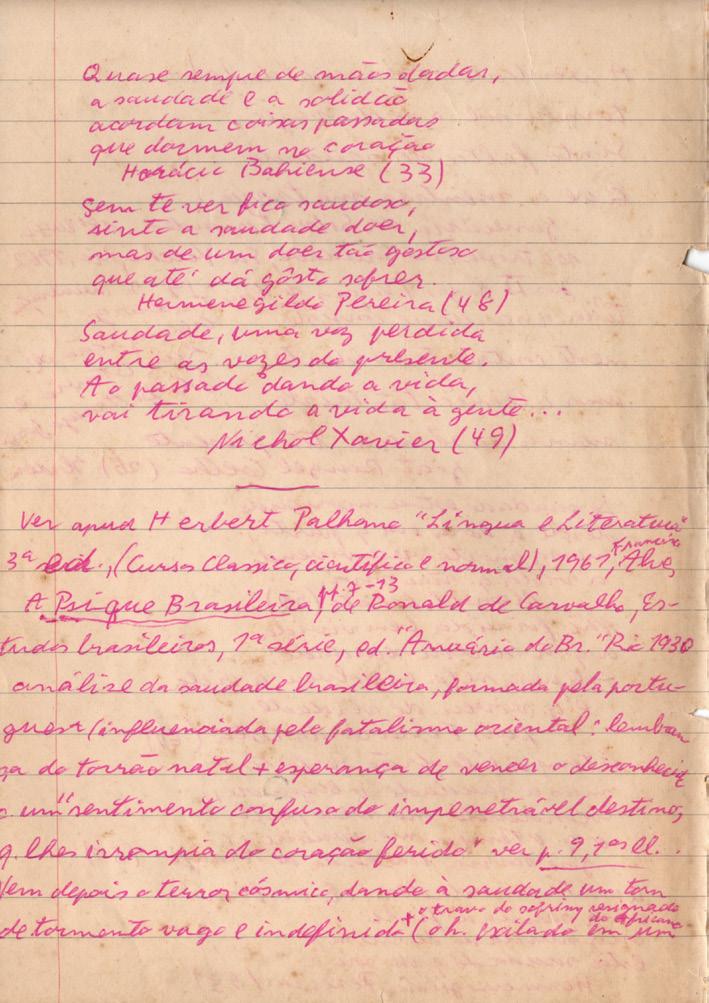 Quase sempre de mãos dadas,
a saudade e a solidão
acordam coisas passadas
que dormem no coração
Horácio Bahiense (33)
Sem te ver fico saudoso,
sinto a saudade doer,
mas de um doer tão gostoso
que até dá gôsto sofrer.
Hermenegildo Pereira (48)
Saudade, uma voz perdida
entre as vozes do presente.
Ao passado dando a vida,
vai tirando a vida à gente...
Nichol Xavier (49)
Ver apud Herbert Palhano "Língua e Literatura"
3ª ed., (Curso Classico, científico e normal), 1961, Francisco Alves
A Psique Brasileira, pp. 7-13 de Ronald de Carvalho, Es-
tudos brasileiros, 1ª série, ed. "Anuário do Br." Rio 1930
análise da saudade brasileira, formada pela portu-
guesa (influenciada pelo fatalismo oriental: lembran
ça do torrão natal + esperança de vencer o desconhecido
o um "sentimento confuso do impenetrável destino,
q. lhes irrompia do coração ferido" ver p. 9, 1ªs ll.
Vem depois o terror cósmico, dando à saudade um tom
+ o travo do sofrim resignado do africano
de tormento vago e indefinido" (oh. exilado em um